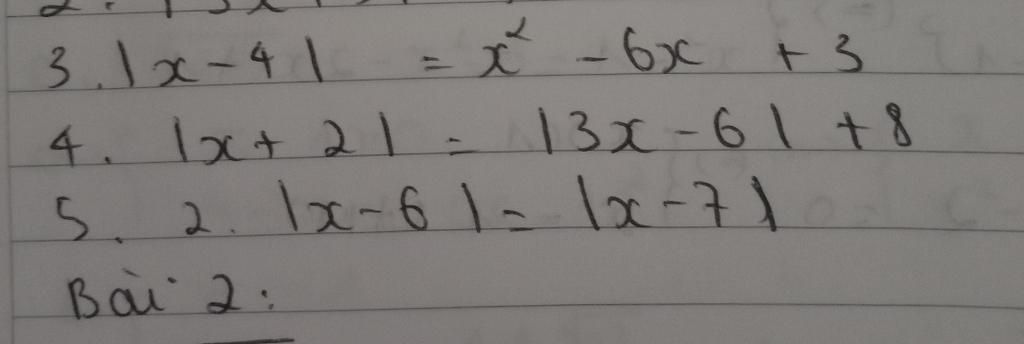 3. |x - 4| = x² - 6x + 3
4. |x + 2| = |3x - 6| + 8
5. 2. |x - 6| = |x - 7|
Bài 2: